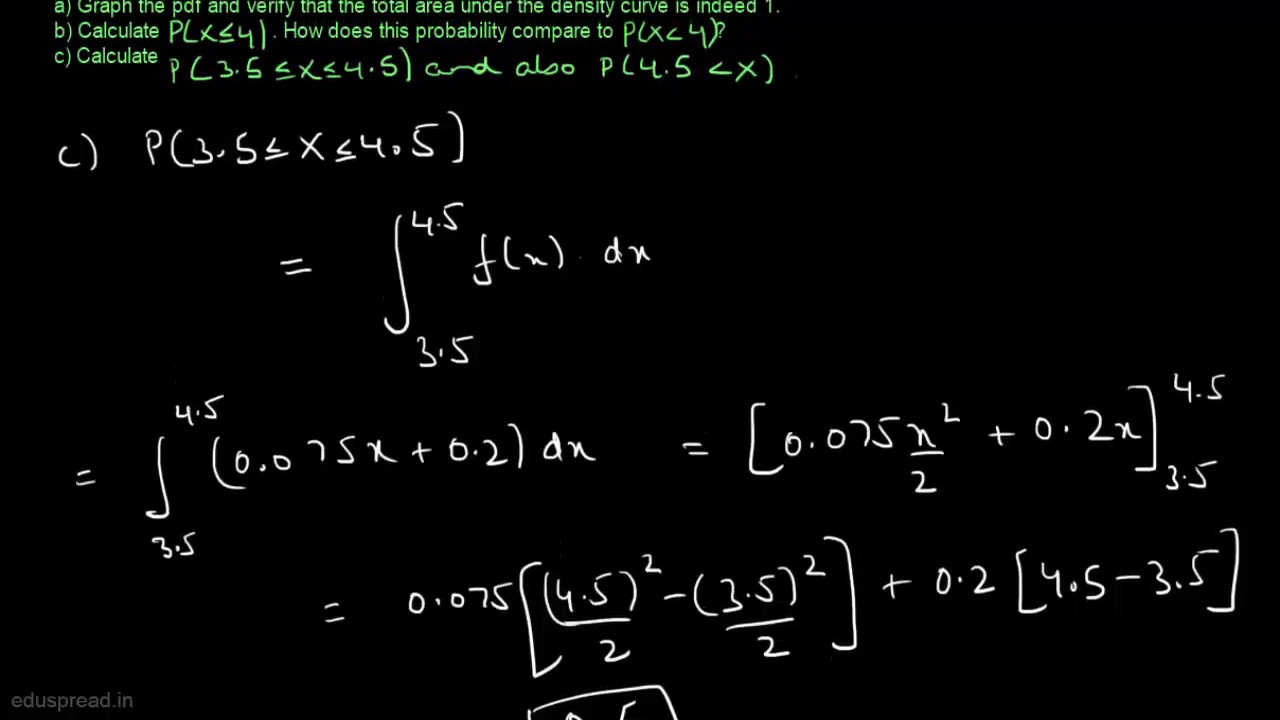 a) Graph the pdf and verify that the total area under the density curve is indeed 1.
b) Calculate P(X≤4). How does this probability compare to P(X<4)?
c) Calculate P(3.5≤X≤4.5) and also P(4.5<X)
c) P(3.5≤X≤4.5)
= ∫_{3.5}^{4.5} f(x). dx
= ∫_{3.5}^{4.5} (0.075x + 0.2) dx = [0.075 x²/2 + 0.2x]_{3.5}^{4.5}
= 0.075 [(4.5)²/2 - (3.5)²/2] + 0.2 [4.5-3.5]
eduspread.in